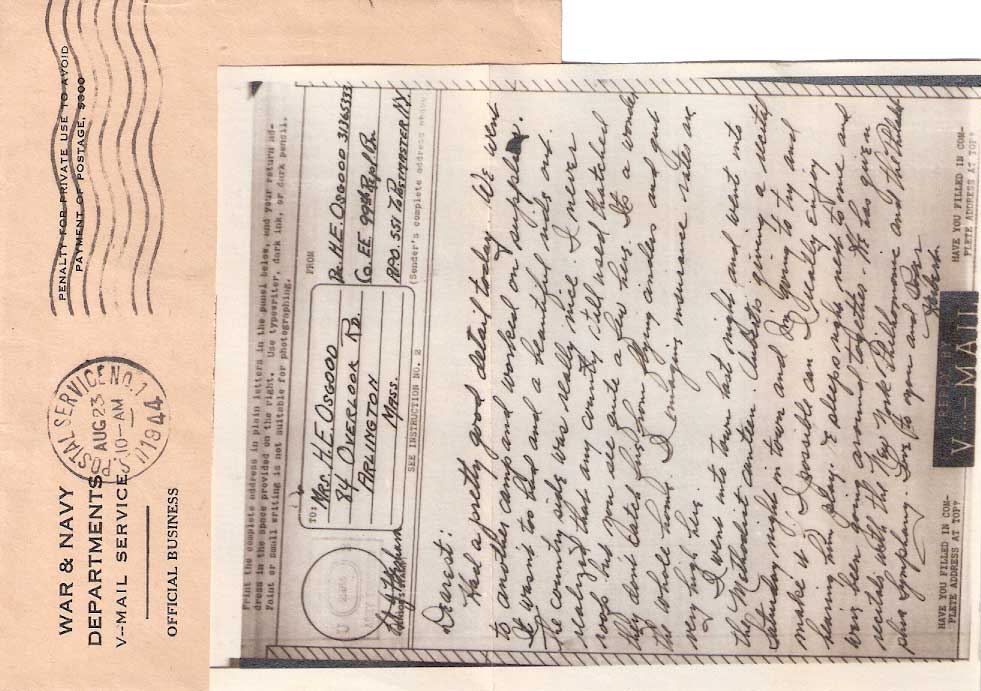 WAR & NAVY
DEPARTMENTS
V--MAIL SERVICE
OFFICIAL BUSINESS
POSTAL SERVICE NO. 1
AUG 23
10-AM
1944
PENALTY FOR PRIVATE USE TO AVOID
PAYMENT OF POSTAGE, $300
Print the complete address in plain letters in the panel below, and your return ad-
dress in the space provided on the right. Use typewriter, dark ink, or dark pencil.
Faint or small writing is not suitable for photographing.
TO:
MRS. H.E. OSGOOD
84 OVERLOOK RD.
ARLINGTON
MASS.
FROM
H.E. OSGOOD
CO. EE
APO. 551 POSTMASTER N.Y.
(Sender's complete address above)
SEE INSTRUCTION NO. 2
Dearest:
Had a pretty good detail today. We went
to another camp and worked on supplies.
It wasn't too bad and a beautiful ride out.
The country side was really nice. I never
realized that any country still used thatched
roofs but you see quite a few here. It's a wonder
they don't catch fire from flying cinders and gut
the whole house. I imagine insurance rates are
very high here.
I went into town last night and went into
the Methodist canteen. is giving a recital
Saturday night in town and I'm going to try and
make it if possible as I really enjoy
hearing him play. E sleeps right next to me and
we've been going around together. He has given
recitals with the New York Philharmonic and the Phila-
phia Symphony. Love to you and
Herbert
HAVE YOU FILLED IN COM-
PLETE ADDRESS AT TOP?
V···—MAIL
HAVE YOU FILLED IN COM-
PLETE ADDRESS AT TOP?